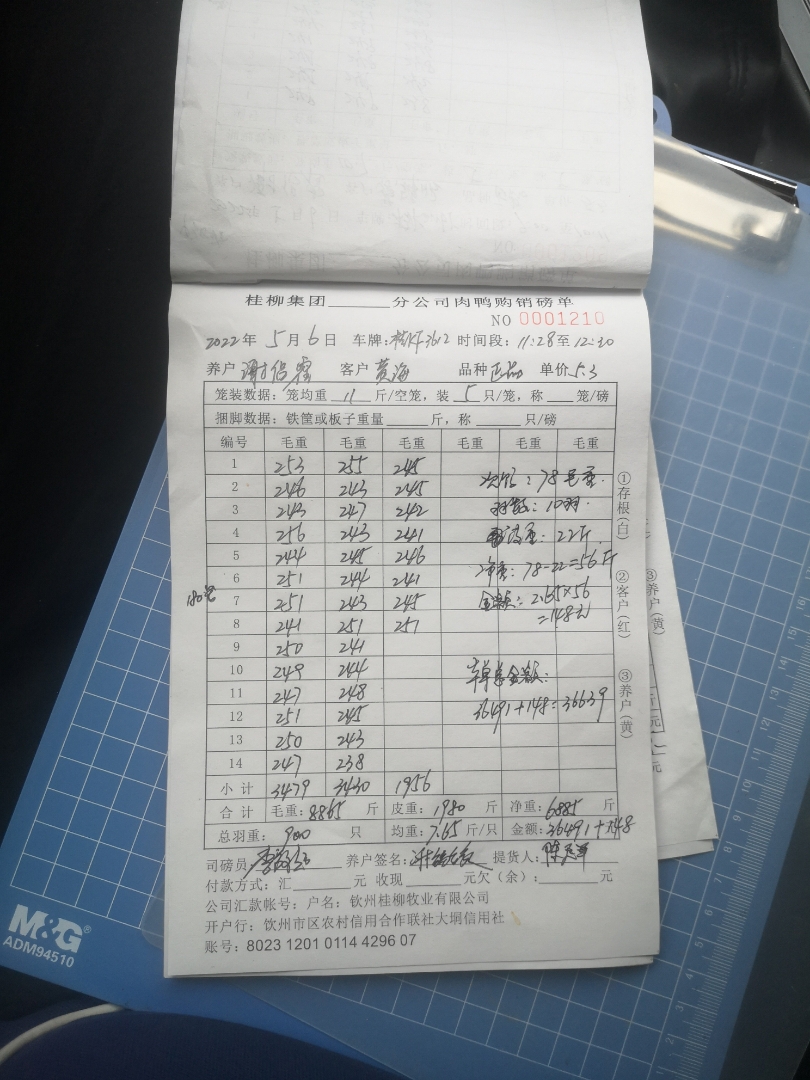 桂柳集团______分公司肉鸭购销磅单
NO 0001210
2022年 5月6日 车牌: 3612 时间段: 11:28至12:20
养户 谢 客户 黄海 品种 正品 单价 5.3
笼装数据: 笼均重 11 斤/空笼, 装 5 只/笼, 称___笼/磅
捆脚数据: 铁筐或板子重量______斤, 称______只/磅
编号 毛重 毛重 毛重 毛重 毛重 毛重
1 253 255 245
2 246 243 245
3 243 247 242
4 256 243 241
5 244 245 246
6 251 244 241
7 251 243 245
8 241 251 251
9 250 241
10 249 244
11 247 248
12 251 245
13 250 243
14 247 238
小计 3479 3430 1956
合计 毛重: 8865 斤 皮重: 1980 斤 净重: 6885 斤
总羽重: 900 只 均重: 7.65 斤/只 金额: 36491+148
180笼
: 78毛重.
羽数: 10羽.
皮重: 22斤.
净重: 78-22=56斤
金额: 2.65×56
=148元
车单总金额:
36491+148=36639
①存根(白)
②客户(红)
③养户(黄)
③养户(黄)
斤
元
元
司磅员: 养户签名: 提货人:
付款方式: 汇______元 收现______元欠(余):______元
公司汇款帐号: 户名: 钦州桂柳牧业有限公司
开户行: 钦州市区农村信用合作联社大垌信用社
账号: 8023 1201 0114 4296 07
M&G
ADM94510